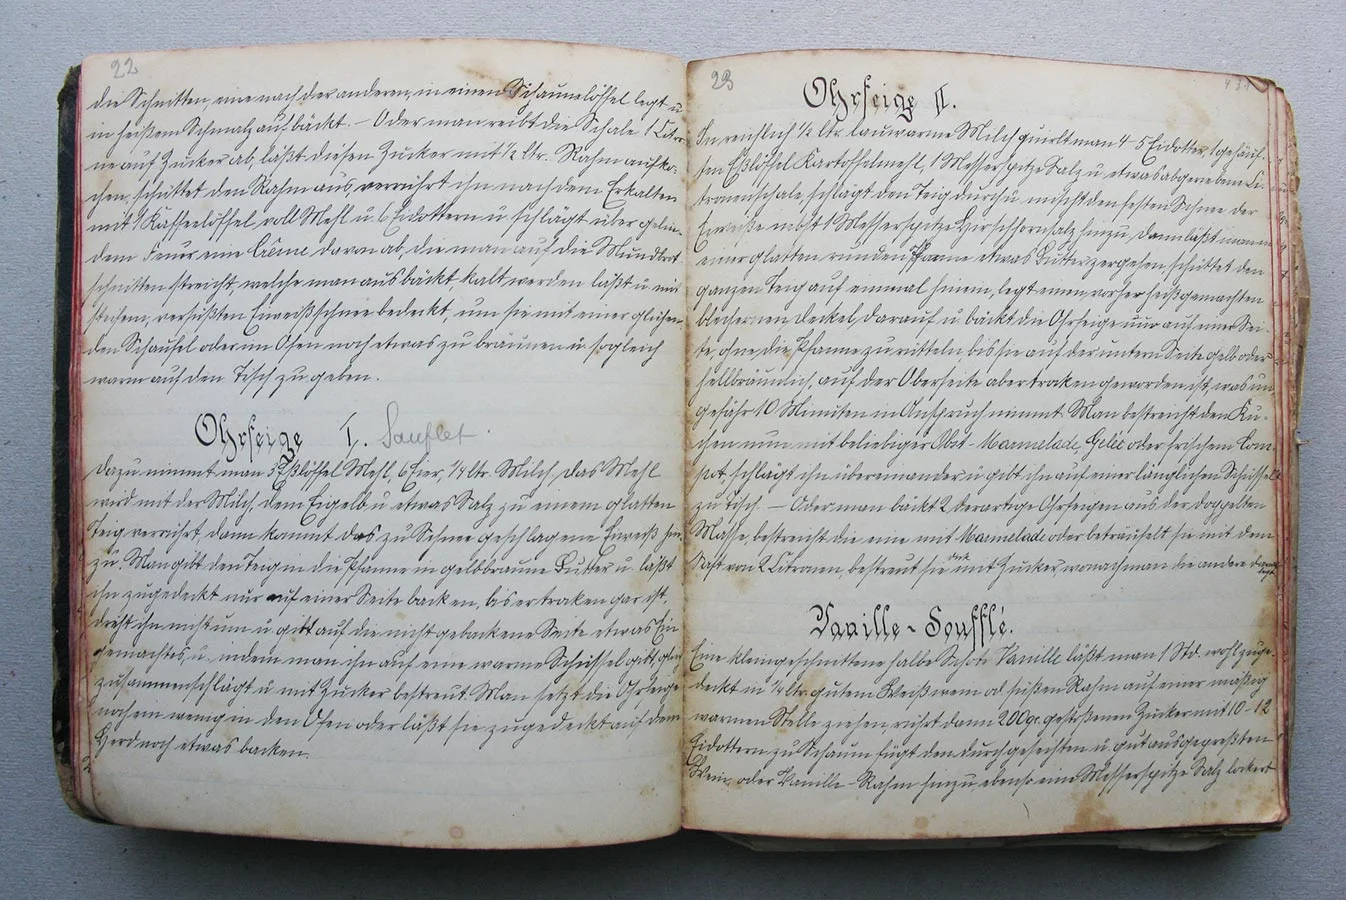 22
die Schnitten, eine nach der anderen, in einen Schaumlöffel legt u.
in heißem Schmalz aufbäckt. – Oder man reibt die Schale 1 Citro-
ne auf Zucker ab, läßt diesen Zucker mit ½ ltr. Rahm aufko-
chen, schüttet den Rahm aus verrührt ihn nach dem Erkalten
mit 1 Kaffeelöffel voll Mehl u. 6 Eidottern u. schlägt über gelin-
dem Feuer eine Crème davon ab, die man auf die Mundbrot-
schnitten streicht, welche man ausbäckt kalt werden läßt u. mit
steifem, versüßten Eiweißschnee bedeckt, um sie mit einer glühen-
den Schaufel oder im Ofen noch etwas zu bräunen u. sogleich
warm auf den Tisch zu geben.
Ohrfeige I. Sauflet.
Dazu nimmt man 3 Eßlöffel Mehl, 6 Eier, ¼ ltr. Milch, das Mehl
wird mit der Milch, dem Eigelb u. etwas Salz zu einem glatten
Teig verrührt dann kommt das zu Schnee geschlagene Eiweiß hin-
zu. Man gibt den Teig in die Pfanne in gelbbraune Butter u. läßt
ihn zugedeckt nur auf einer Seite backen, bis er trocken gar ist,
dreht ihn nicht um u. gibt auf die nicht gebackene Seite etwas Ein-
gemachtes u. indem man ihn auf eine warme Schüssel gibt, gleich
zusammenschlägt u. mit Zucker bestreut. Man setzt die Ohrfeige
noch ein wenig in den Ofen oder läßt sie zugedeckt auf dem
Herd noch etwas backen.
23
Ohrfeige II.
In reichlich ½ ltr. lauwarme Milch quirlt man 4-5 Eidotter, 1 gehäuf-
ten Eßlöffel Kartoffelmehl, 1 Messerspitze Salz u. etwas abgeriebene Ci-
tronenschale, schlägt den Teig durch u. mischt den festen Schnee der
Eiweiße nebst 1 Messerspitze Hirschhornsalz hinzu. Dann läßt man in
einer glatten runden Pfanne etwas Butter zergehen, schüttet den
ganzen Teig auf einmal hinein, legt einen vorher heißgemachten
blechernen Deckel darauf u. bäckt die Ohrfeige nur auf einer Sei-
te ohne die Pfanne zu rütteln, bis sie auf der untern Seite gelb oder
hellbräunlich, auf der Oberseite aber trocken geworden ist, was un-
gefähr 10 Minuten in Anspruch nimmt. Man bestreicht den Ku-
chen nun mit beliebiger Obst-Marmelade, Gelée oder frischem Com-
pot, schlägt ihn übereinander u. gibt ihn auf einer länglichen Schüssel
zu Tisch. – Oder man bäckt 2 derartige Ohrfeigen aus der doppelten
Masse, bestreicht die eine mit Marmelade oder beträufelt sie mit dem
Saft von 2 Citronen, bestreut sie dick mit Zucker, wonach man die andere darauf
legt.
Vanille-Soufflé.
Eine kleingeschnittene halbe Schote Vanille läßt man 1 Std. wohl zuge-
deckt in ¼ ltr. gutem Weißwein od. süßen Rahm auf einer mäßig
warmen Stelle ziehen, rührt dann 200 gr. gestoßenen Zucker mit 10-12
Eidottern zu Schaum fügt den durchgeseihten u. gut ausgepreßten
Wein- oder Vanille-Rahm hinzu ebenso eine Messerspitze Salz lockert